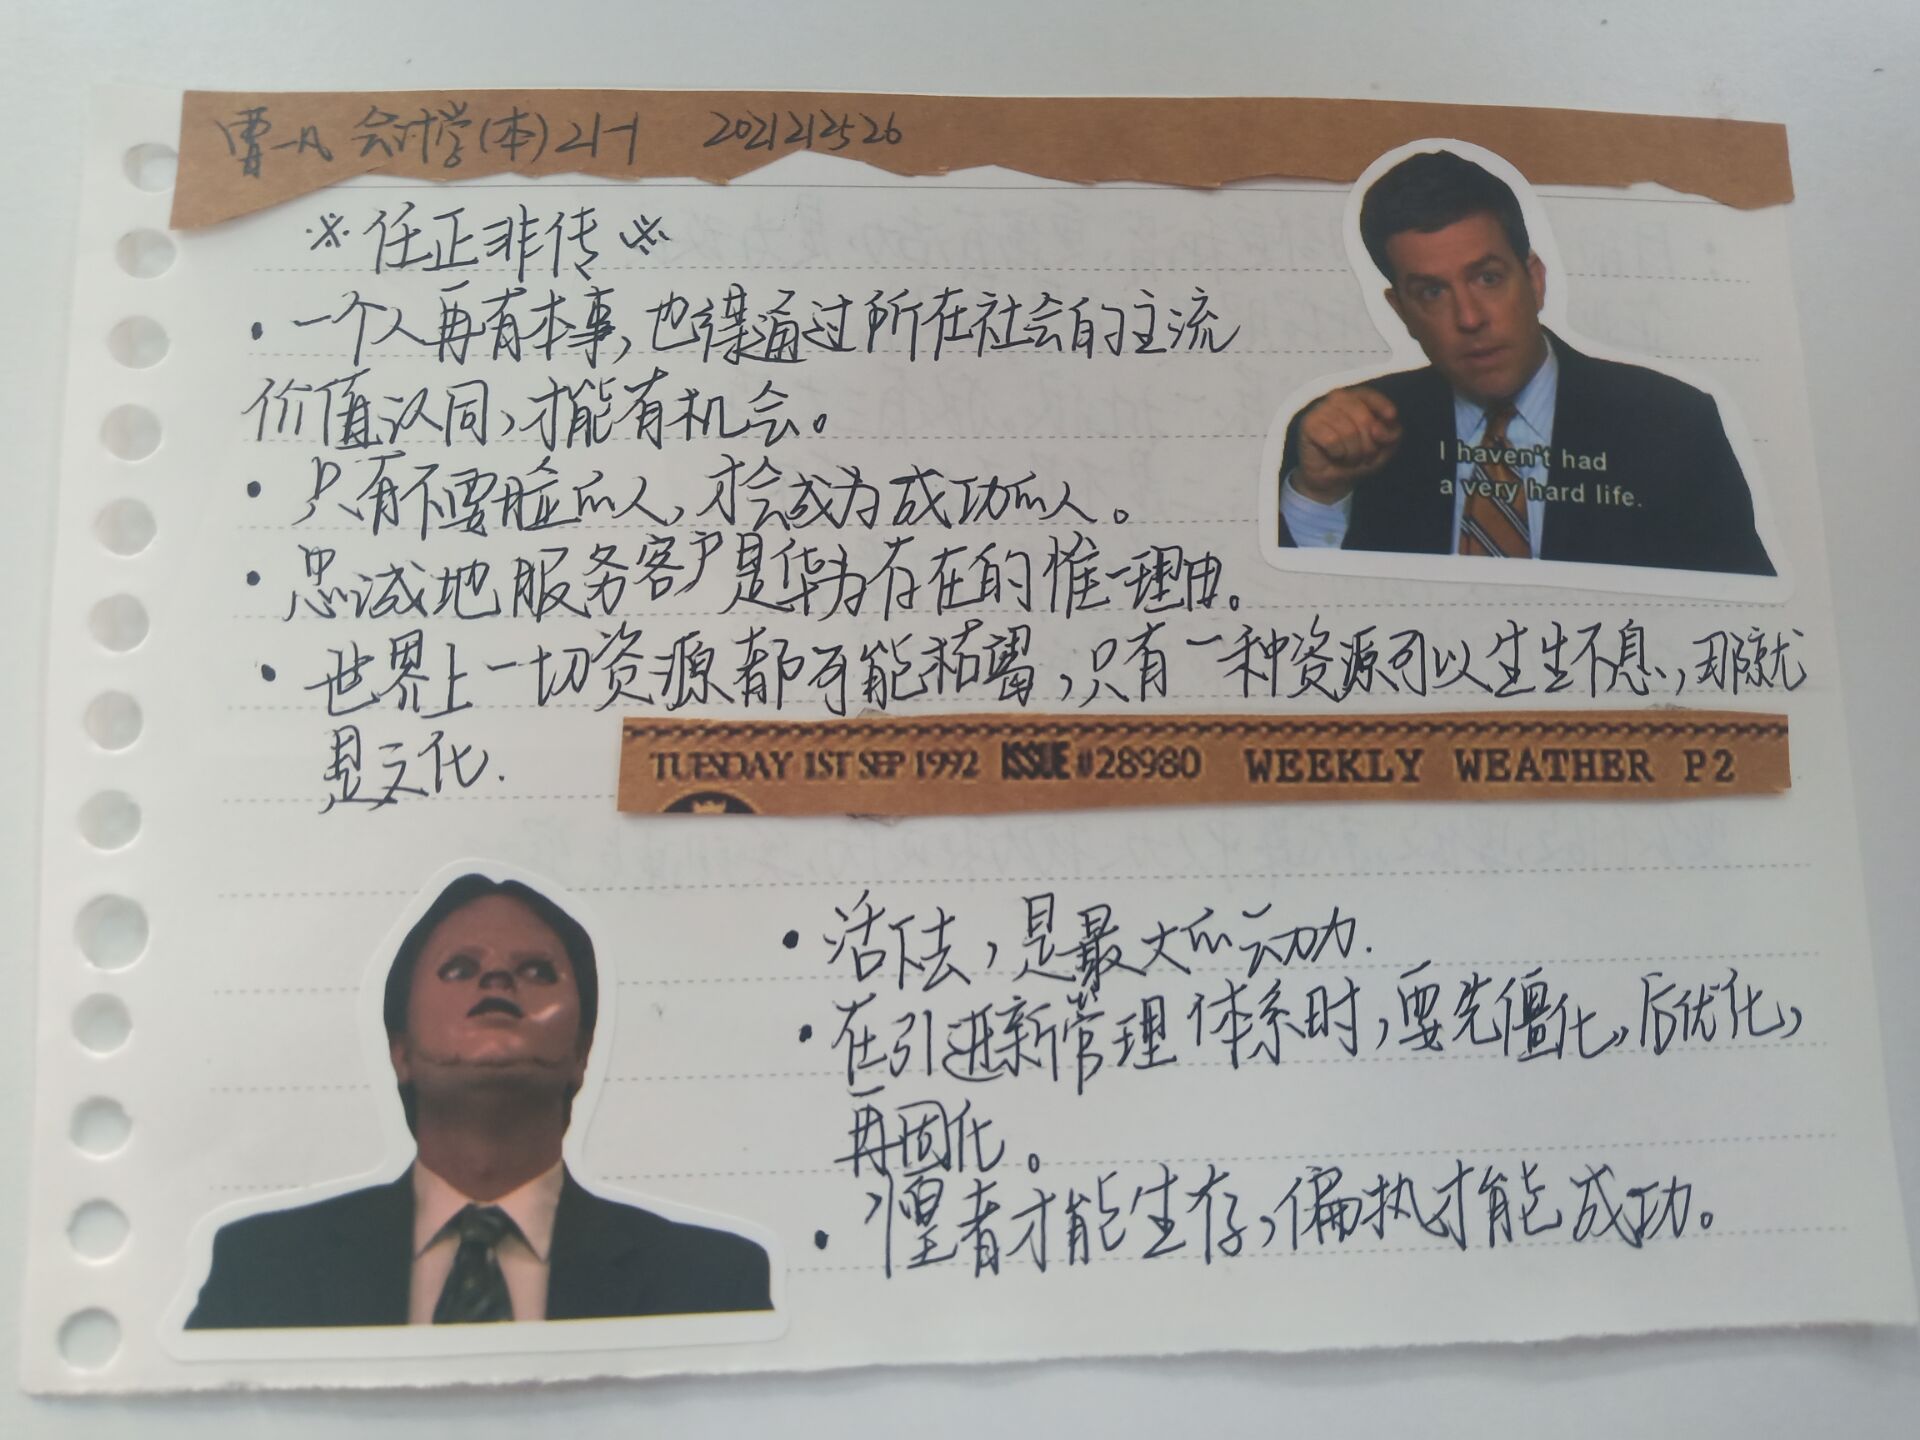 曹一凡 会计学(本)21-1 2021212526
※任正非传※
·一个人再有本事,也得通过所在社会的主流
价值认同,才能有机会。
·只有不要脸的人,才会成为成功的人。
·忠诚地服务客户是华为存在的惟一理由。
·世界上一切资源都可能枯竭,只有一种资源可以生生不息,那就
是文化.
I haven't had
a very hard life.
TUESDAY 1ST SEP 1992 ISSUE #28980 WEEKLY WEATHER P2
·活下去,是最大的动力.
·在引进新管理体系时,要先僵化,后优化,
再固化。
·惶者才能生存,偏执才能成功。